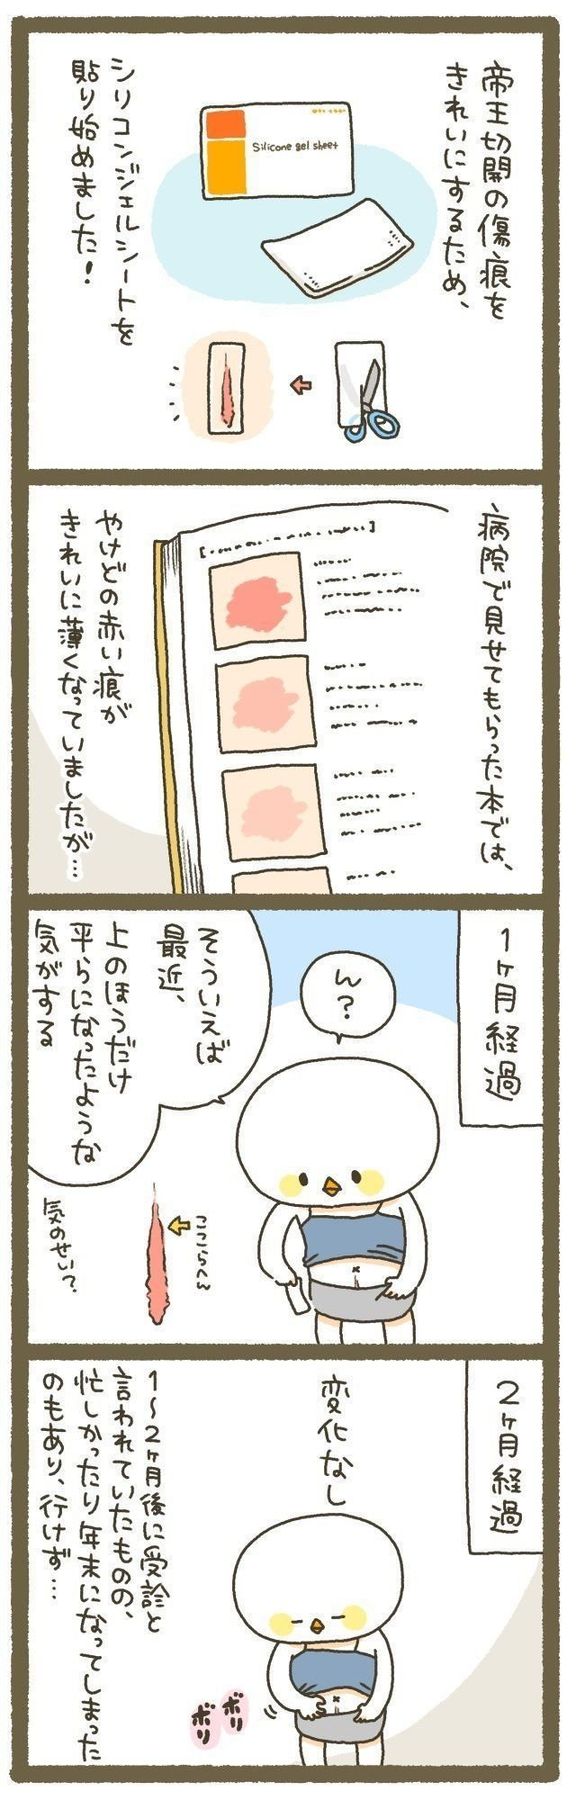 帝王切開の傷痕を
きれいにするため、
Silicone gel sheet
シリコンジェルシートを
貼り始めました!
病院で見せてもらった本では、
やけどの赤い痕が
きれいに薄くなっていましたが…
1ヶ月経過
ん?
そういえば
最近、
上のほうだけ
平らになったような
気がする
ここらへん
気のせい?
2ヶ月経過
変化なし
ボリ
ボリ
1〜2ヶ月後に受診と
言われていたものの、
忙しかったり年末になってしまった
のもあり、行けず…